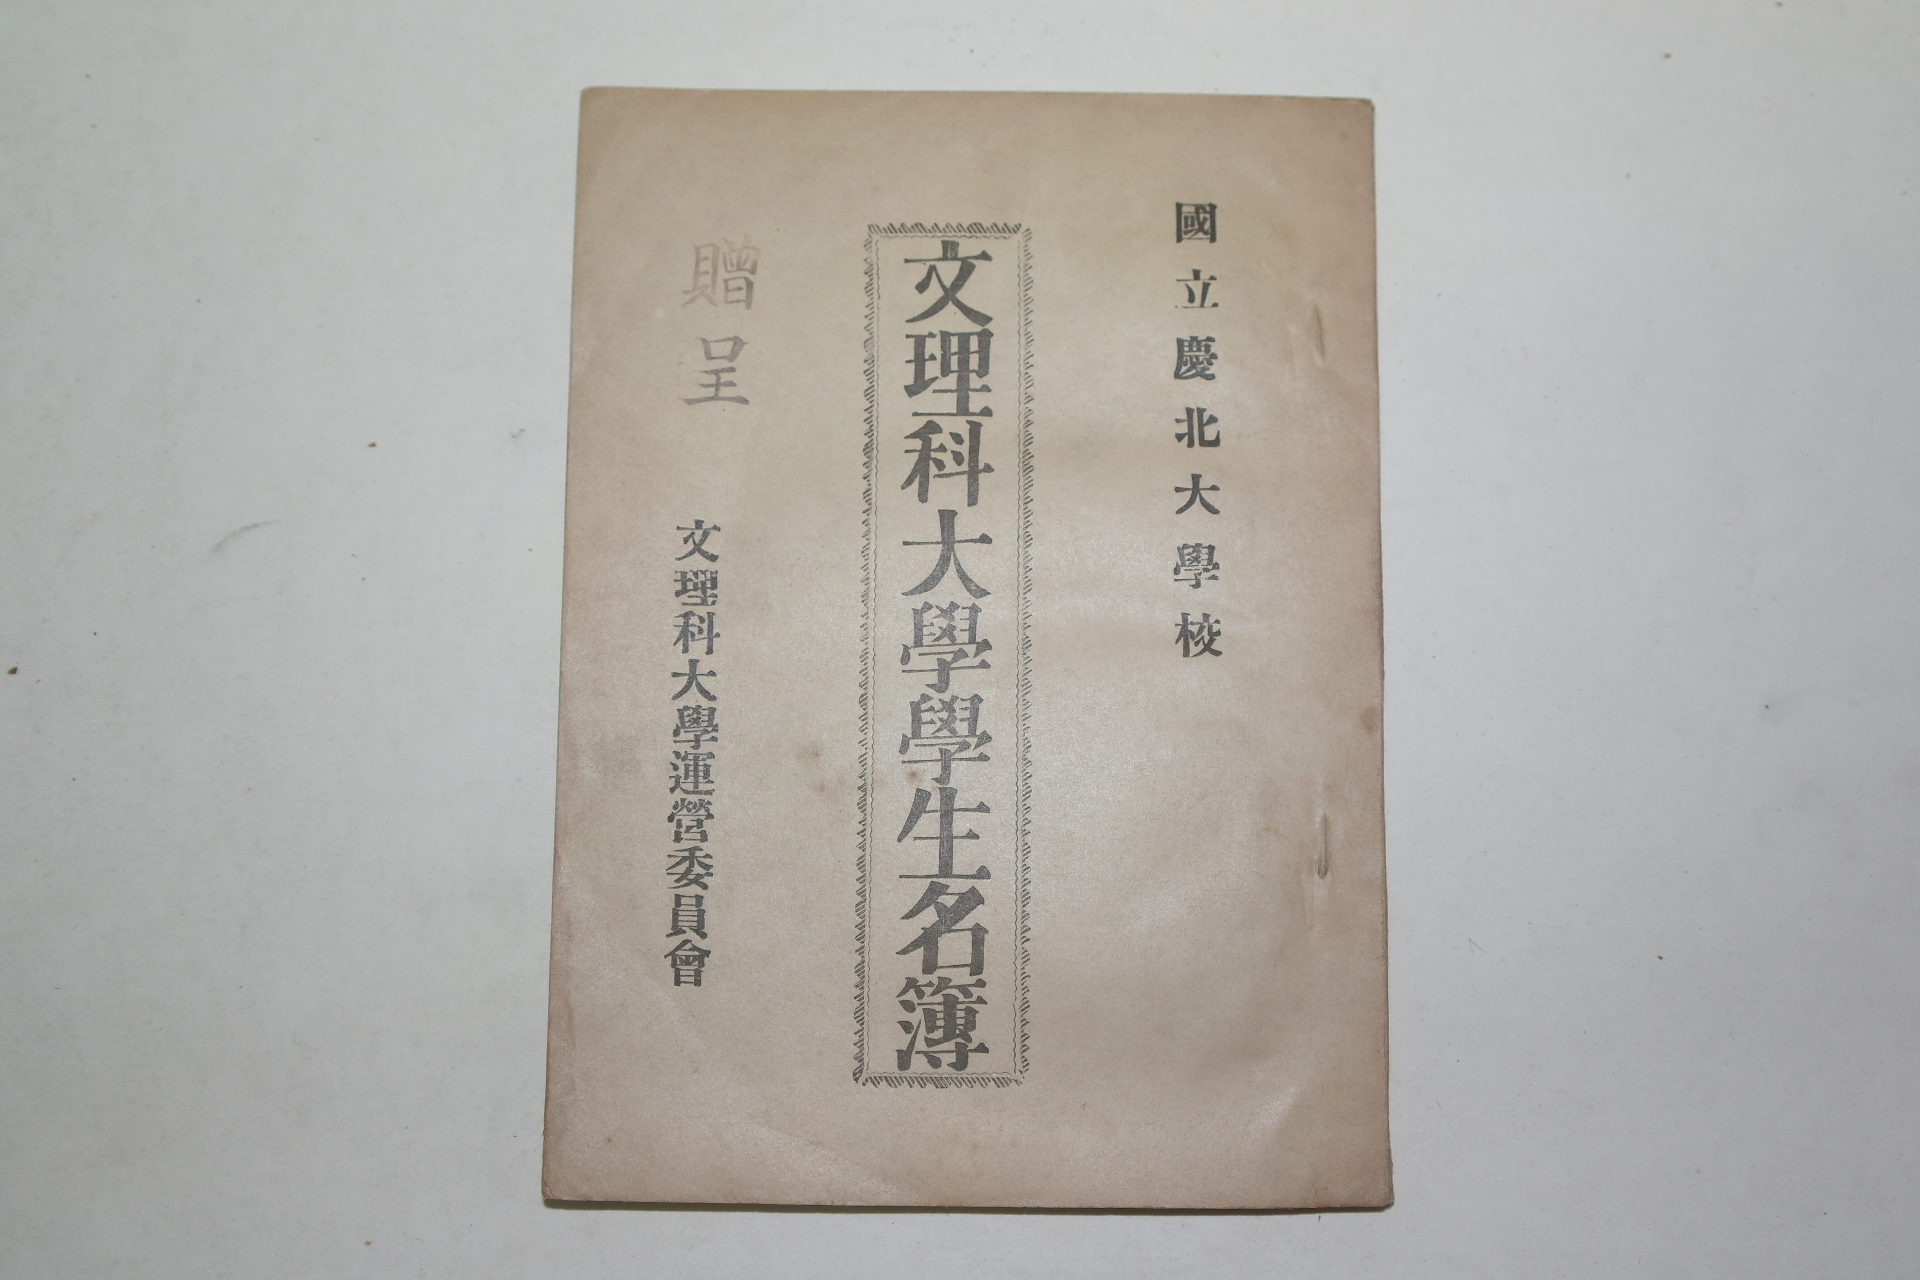 國立慶北大學校
文理科大學學生名簿
贈呈
文理科大學運營委員會